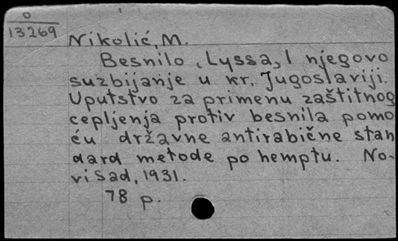 O
13269
Nikolić, M.
Besnilo (Lyssa) I njegovo
suzbijanje u kr. Jugoslaviji.
Uputstvo za primenu zaštitnog
cepljenja protiv besnila pomo
ću državne antirabične stan
dard metode po hemptu. No-
vi Sad, 1931.
78 p.